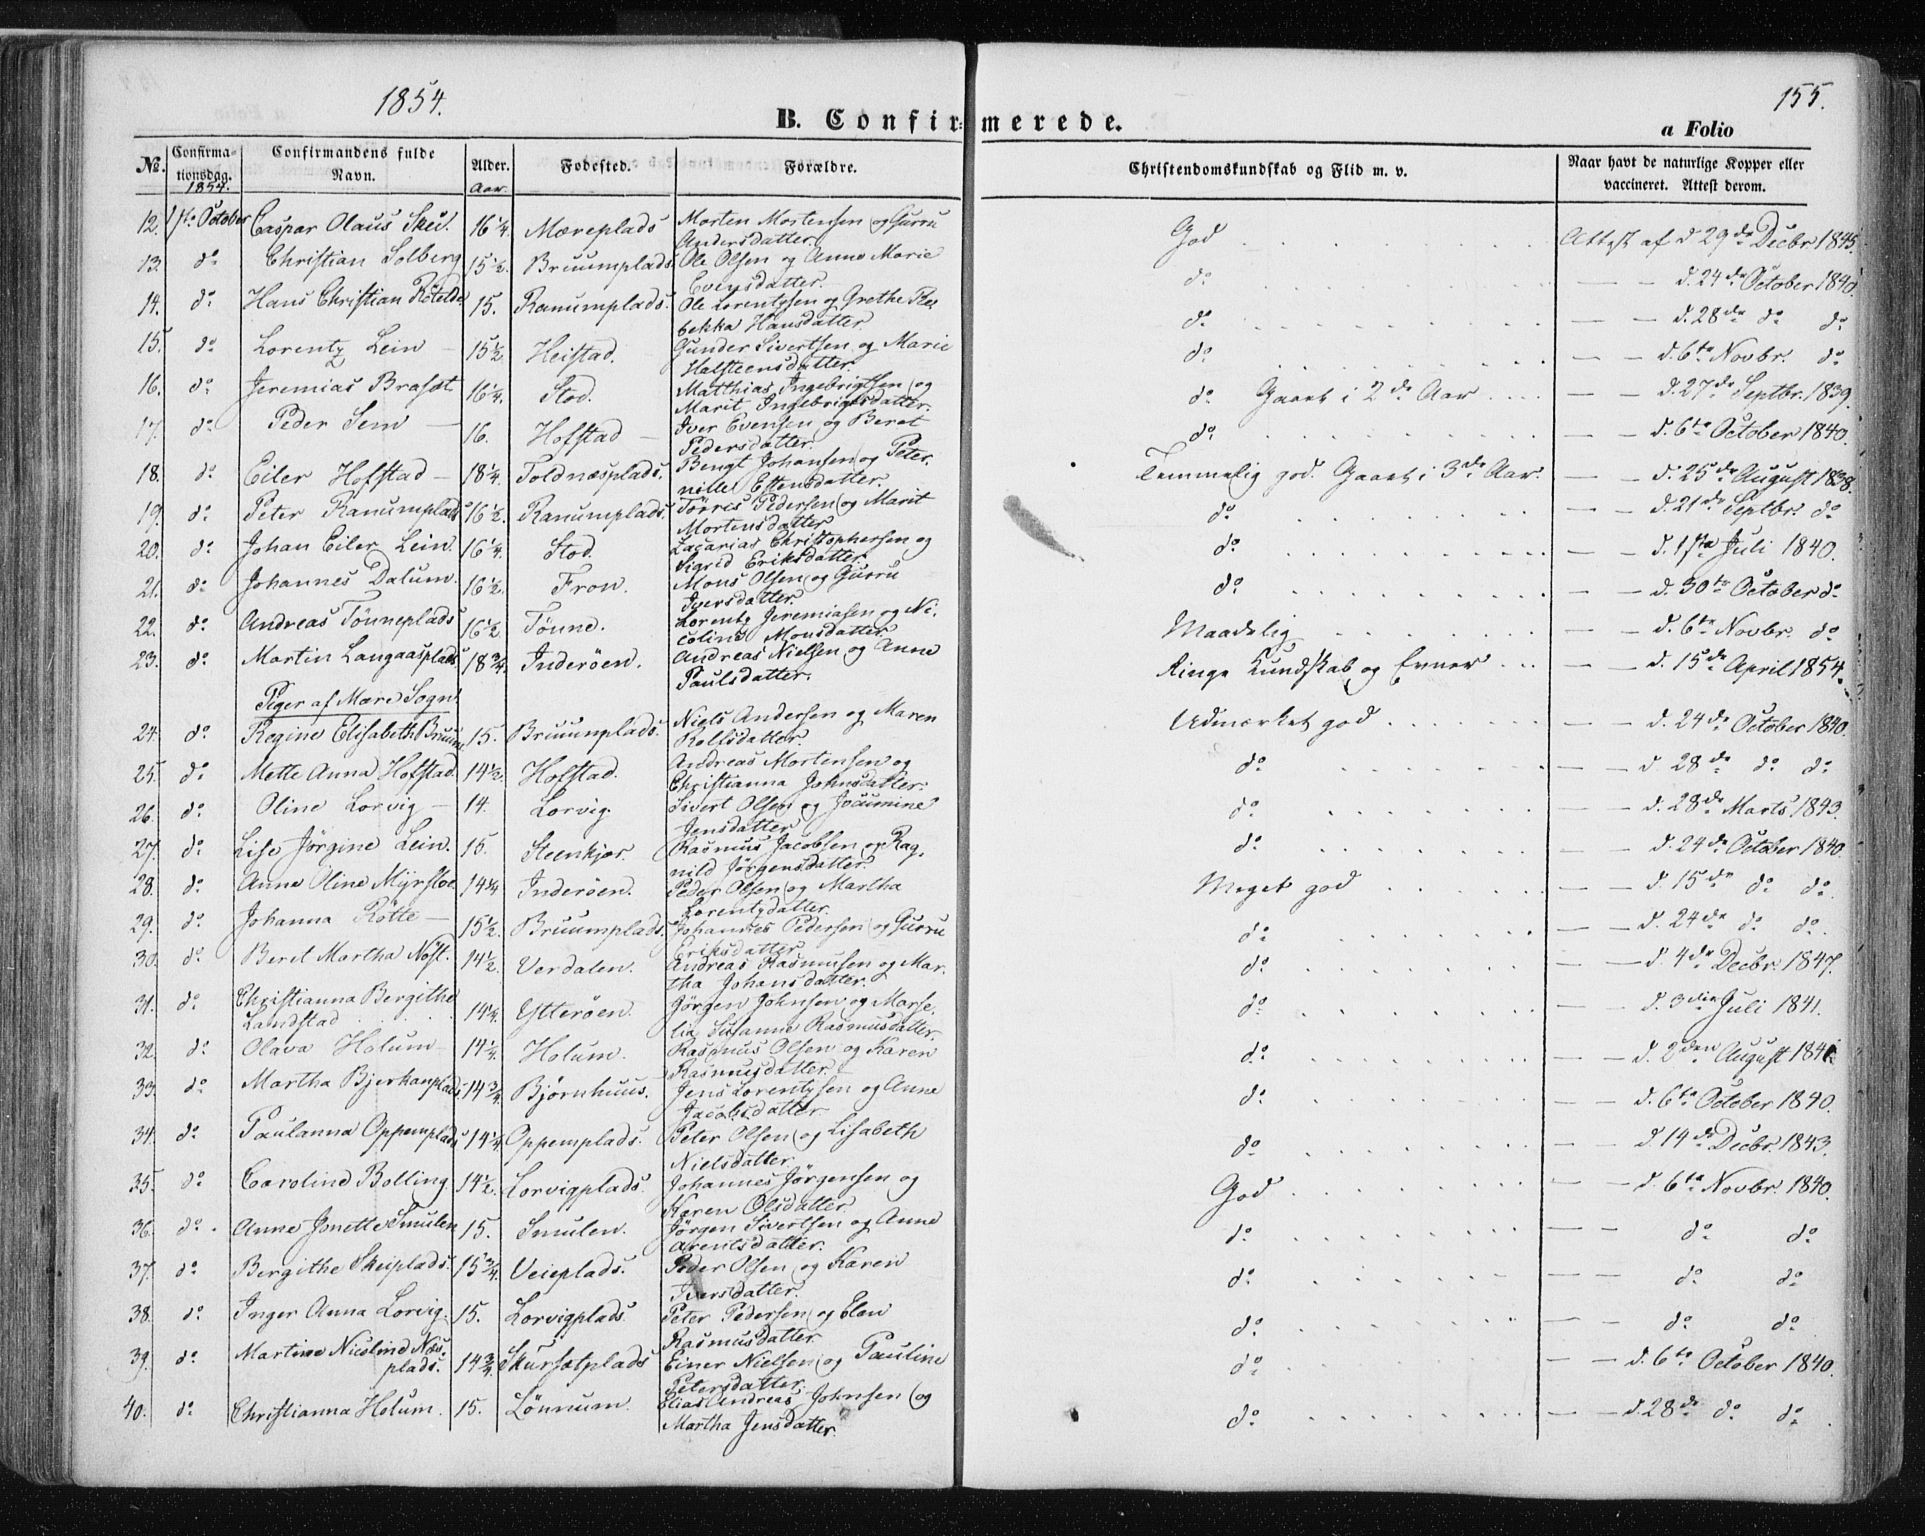 1854.
155.
B. Confirmerede.
a Folio
No. Confirmationsdag. 1854. Confirmandens fulde Navn. Alder. Aar. Fodested. Forældre. Christendomskundskab og Flid m. v. Naar havt de naturlige Kopper eller vaccineret. Attest derom.
12. 1ste October Caspar Olaus Skei. 16 1/4. Mæreplads Morten Mortensen og Gurru Andersdatter. God Attest af d 29de Decbr 1845.
13. do Christian Solberg 15 1/2. Bruumplads. Ole Olsen og Anne Marie Evensdatter. do — — d. 24de October 1840.
14. do Hans Christian 15. Ranumplads. Ole Lorentzsen og Grethe Rebekka Hansdatter. do — — d. 28de do do
15. do Lorentz Lein — 15 1/2. Heistad. Gunder Sivertsen og Marie Halsteensdatter. do — — d. 6te Novbr. do
16. do Jeremias 16 1/4. Stod. Matthias Ingebrigtsen og Marit Ingebrigtsdatter. do Gaaet i 2de Aar — — d. 27de Septbr. 1839.
17. do Peder Sem — 16. Hofstad — Iver Evensen og Beret Pedersdatter. do — — d. 6te October 1840.
18. do Eiler Hofstad — 18 1/4. Toldnæsplads. Bengt Johansen og Peternille Estensdatter. Temmelig god. Gaaet i 3de Aar. — — d. 25de August 1838.
19. do Peter Ranumplads 16 1/2. Ranumplads. Tørris Pedersen og Marit Mortensdatter do — — d. 21de Septbr. do
20. do Johan Eiler Lein. 16 1/4. Stod. Zacarias Christophersen og Sigrid Eriksdatter. do — — d. 1ste Juli 1840.
21. do Johannes Dalum. 16 1/2. Fron. Mons Olsen og Gurru Iversdatter. do — — d. 30te October do
22. do Andreas Tønneplads 16 1/2 Tønne. Lorentz Jeremiasen og Nicoline Monsdatter Maadelig — — d. 6te Novbr. do
23. do Martin Langaasplads 18 3/4. Inderöen. Andreas Nielsen og Anne Paulsdatter. Ringe Kundskab og Evner — — d. 15de April 1854.
Piger af Mære Sogn.
24. do Regine Elisabeth Bruum. 15. Bruumplads. Niels Andersen og Maren Rolfsdatter. Udmærket god — — d. 24de October 1840.
25. do Mette Anna Hofstad. 14 1/2. Hofstad. Andreas Mortensen og Christianna Johnsdatter. do — — d 28de do do
26. do Oline Lorvig — 14. Lorvig. Sivert Olsen og Jensdatter do — — d. 28de Marts 1843.
27. do Lise Jörgine Lein. 15. Steenkjær. Rasmus Jacobsen og Ragnild Jörgensdatter. do — — d. 24de October 1840.
28. do Anne Oline 14 1/4 Inderöen. Peder Olsen og Martha Lorentzdatter. Meget god — — d. 15de do do
29. do Johanna Rötte — 15 1/2. Bruumplads. Johannes Pedersen og Gurru Eriksdatter. do — — d. 24de do do
30. do Beret Martha Nöst. 14 1/2. Verdalen. Andreas Rasmusen og Martha Johansdatter. do — — d. 4de Decbr. 1847.
31. do Christianna Bergithe Landstad 14 1/4. Ytteröen. Jörgen Johnsen og Marselia Susanne Rasmusdatter. do — — d. 3die Juli 1841.
32. do Olava Holum — 14 1/4. Holum. Rasmus Olsen og Karen Rasmusdatter — do — — d. 2den August
33. do Martha Bjerkanplads 14 3/4. Bjørnhuus. Jens Lorentzsen og Anne Jacobsdatter do — — d. 6te October 1840.
34. do Paulanna Oppemplads 14 1/4. Oppemplads. Peter Olsen og Lisabeth Nielsdatter. do — — d. 14de Decbr 1843.
35. do Carolina Bolling 14 1/2. Lorvigplads. Johannes Jörgensen og Karen Olsdatter God — — d. 6te Novbr. 1840.
36. do Anne Jonette Smulen 15. Smulen. Jörgen Sivertsen og Anne Arentsdatter. do — — do do
37. do Bergithe Skeiplads. 15 3/4. Veieplads. Peder Olsen og Karen Iversdatter. do — — do do
38. do Inger Anna Lorvig. 15. Lorvigplads. Peter Pedersen og Elen Rasmusdatter do — — do do
39. do Martine Nicoline Næsplads. 14 3/4. Einer Nielsen og Pauline Petersdatter. do — — d. 6te October 1840.
40. do Christianna Holum. 15. Lönnum. Elias Andreas Johnsen og Martha Jensdatter. do — — d. 28de do do